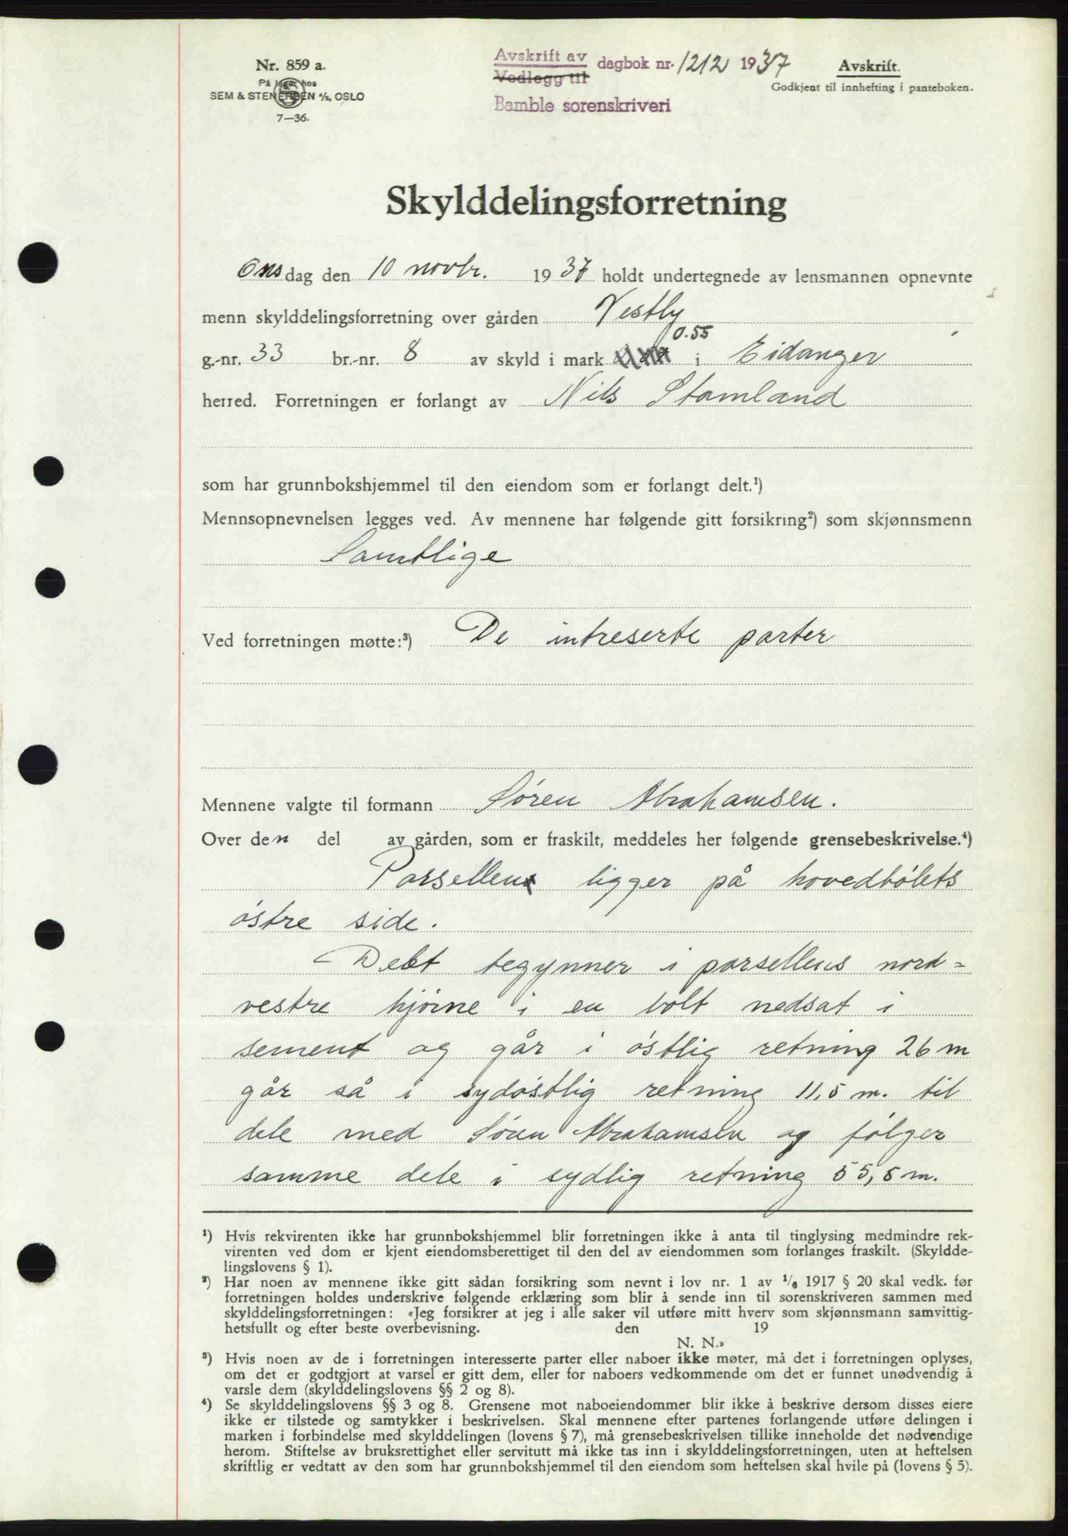 Nr. 859 a.
På lager hos
SEM & STENERSEN A/S, OSLO
7—36.
Avskrift av
Vedlegg til
dagbok nr. 1212 1937
Bamble sorenskriveri
Avskrift.
Godkjent til innhefting i panteboken.
Skylddelingsforretning
Onsdag den 10 novbr. 1937 holdt undertegnede av lensmannen opnevnte
menn skylddelingsforretning over gården Vestly
g.-nr. 33 br.-nr. 8 av skyld i mark 0.55 i Eidanger
herred. Forretningen er forlangt av Nils Stamland
som har grunnbokshjemmel til den eiendom som er forlangt delt.¹)
Mennsopnevnelsen legges ved. Av mennene har følgende gitt forsikring²) som skjønnsmenn
Samtlige
Ved forretningen møtte:³) De intreserte parter
Mennene valgte til formann Søren Abrahamsen.
Over den del av gården, som er fraskilt, meddeles her følgende grensebeskrivelse.⁴)
Parsellen ligger på hovedbølets
østre side.
Delet begynner i parsellens nord=
vestre hjørne i en bolt nedsat i
sement og går i østlig retning 26 m
går så i sydøstlig retning 11,5 m. til
dele med Søren Abrahamsen og følger
samme dele i sydlig retning 55,5 m.
¹) Hvis rekvirenten ikke har grunnbokshjemmel blir forretningen ikke å anta til tinglysing medmindre rek-
virenten ved dom er kjent eiendomsberettiget til den del av eiendommen som forlanges fraskilt. (Skyldde-
lingslovens § 1).
²) Har noen av mennene ikke gitt sådan forsikring som nevnt i lov nr. 1 av 1/6 1917 § 20 skal vedk. før
forretningen holdes underskrive følgende erklæring som blir å sende inn til sorenskriveren sammen med
skylddelingsforretningen: «Jeg forsikrer at jeg i alle saker vil utføre mitt hverv som skjønnsmann samvittig-
hetsfullt og efter beste overbevisning. den 19
N. N.»
³) Hvis noen av de i forretningen interesserte parter eller naboer ikke møter, må det i forretningen oplyses,
om det er godtgjort at varsel er gitt dem, eller for naboers vedkommende om det er funnet unødvendig å
varsle dem (skylddelingslovens §§ 2 og 8).
⁴) Se skylddelingslovens §§ 3 og 8. Grensene mot naboeiendommer blir ikke å beskrive dersom disses eiere
ikke er tilstede og samtykker i beskrivelsen. Skal mennene efter partenes forlangende utføre delingen i
marken i forbindelse med skylddelingen (lovens § 7), må grensebeskrivelsen tillike inneholde det nødvendige
herom. Stiftelse av bruksrettighet eller servitutt må ikke tas inn i skylddelingsforretningen, uten at heftelsen
skriftlig er vedtatt av den som har grunnbokshjemmel til den eiendom som heftelsen skal hvile på (lovens § 5).